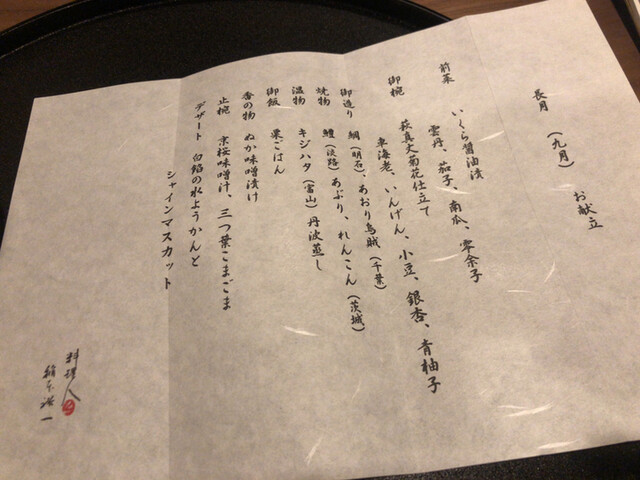 長月 (九月) お献立
前菜 いくら醤油漬
雲丹、茄子、南瓜、零余子
御椀 萩真丈菊花仕立て
車海老、いんげん、小豆、銀杏、青柚子
御造り 鯛(明石)、あおり烏賊(千葉)
焼物 鱧(淡路)あぶり、れんこん(茨城)
温物 キジハタ(富山)丹波蒸し
御飯 栗ごはん
香の物 ぬか味噌漬け
止椀 京桜味噌汁、三つ葉こまごま
デザート 白餡の水ようかんと
シャインマスカット
料理人